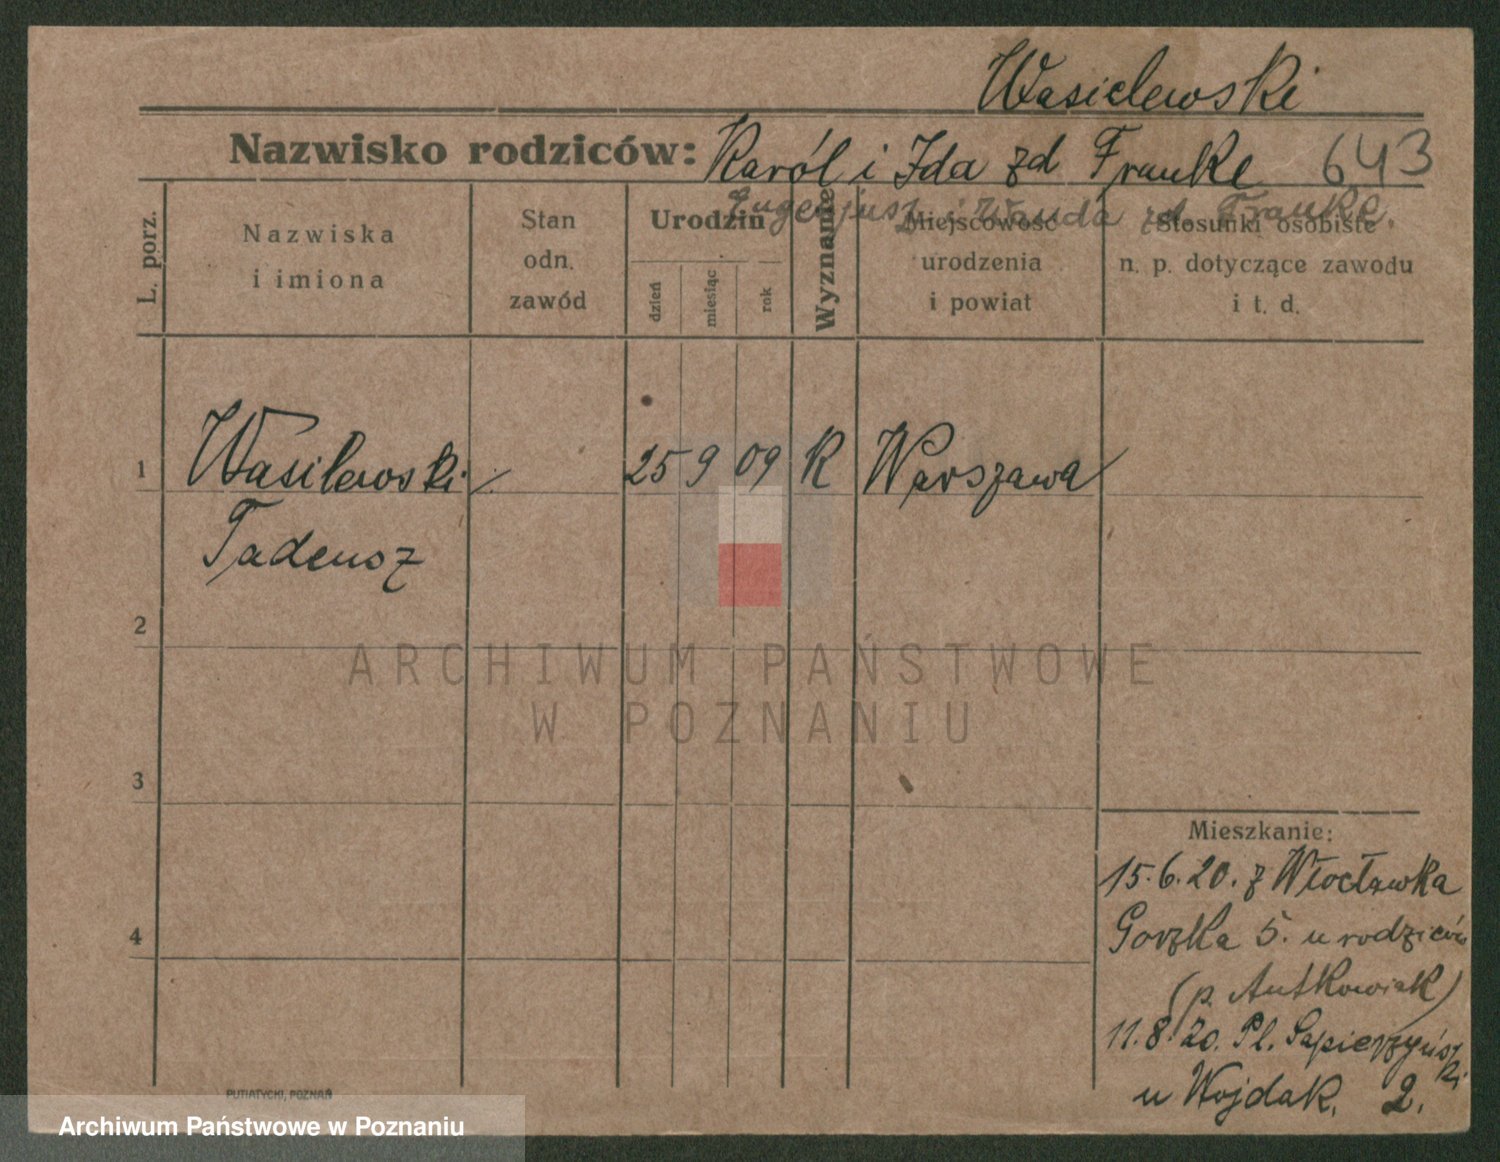 Wasielewski
Nazwisko rodziców: Karól i Ida zd Franke 643
Eugenjusz i Wanda zd. Franke.
L. porz.
Nazwiska
i imiona
Stan
odn.
zawód
Urodzin
dzień
miesiąc
rok
Wyznanie
Miejscowość
urodzenia
i powiat
Stosunki osobiste
n. p. dotyczące zawodu
i t. d.
1 Wasilewski 25 9 09 R Warszawa
Tadeusz
2
ARCHIWUM PAŃSTWOWE
W POZNANIU
3
4
Mieszkanie:
15.6.20. z Włocławka
Gorzka 5. u rodziców
(p. Antkowiak)
11.8.20. Pl. Sapierzyński
u Wojdak. 2.
PUTIATYCKI, POZNAŃ
Archiwum Państwowe w Poznaniu